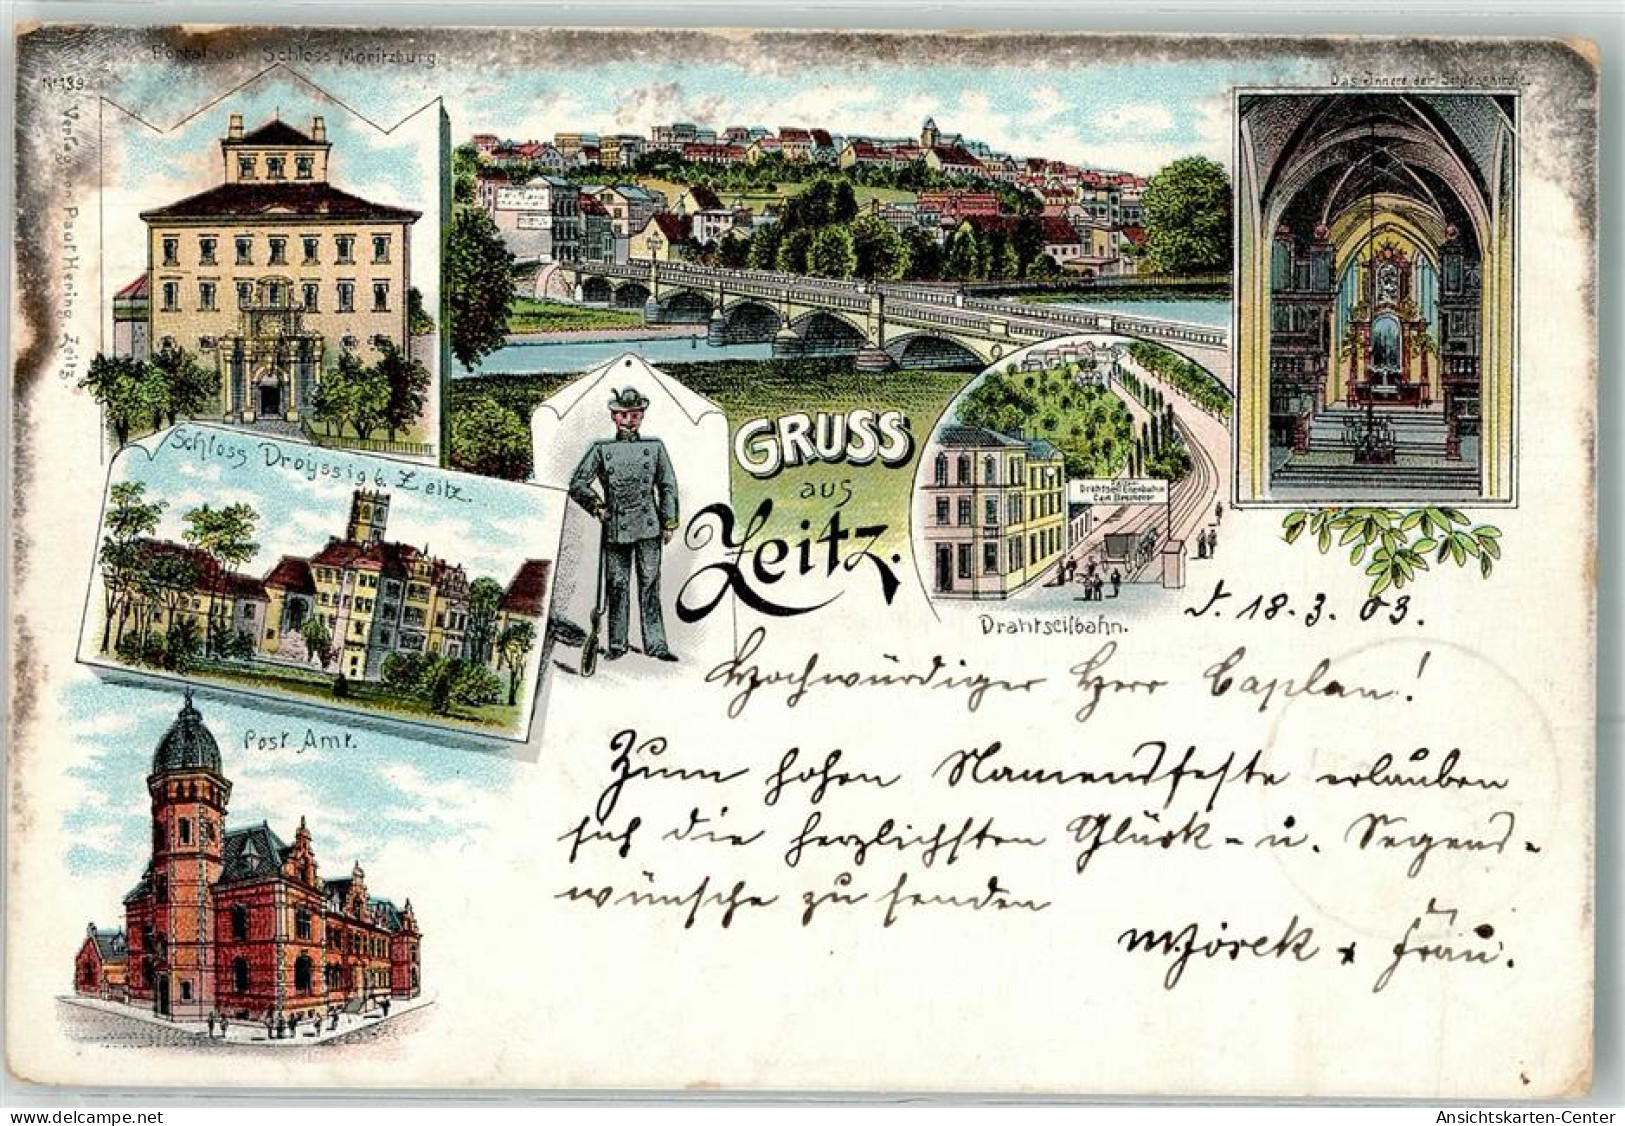 Portal von Schloss Moritzburg
No 139
Verlag von Paul Hering, Zeitz.
Das Innere der Schlosskirche.
Schloss Droyssig b. Zeitz.
GRUSS
aus
Zeitz.
Drahtseilbahn
Drahtseilbahn.
Post Amt.
d. 18.3.03.
Hochwürdiger Herr Caplan!
Zum hohen Namensfeste erlauben
sich die herzlichsten Glück- u. Segens-
wünsche zu senden
u. Frau.
Ansichtskarten-Center